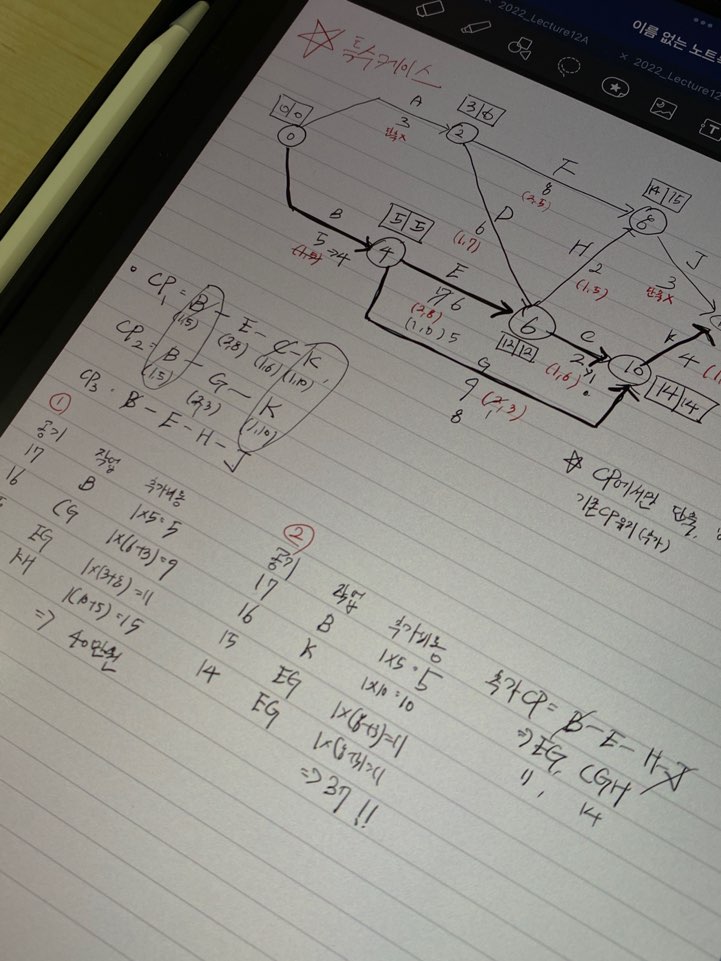 이름 없는 노트
2022_Lecture12A
× 2022_Lecture12
☆ 특수케이스
0 0
0
A
3
단축X
3 6
2
F
8
(3,5)
14 15
8
J
3
단축X
B
5→4
(1,5)
5 5
4
D
6
(1,7)
H
2
(1,5)
E
7 6
(2,8)
(1,8) 5
6
12 12
C
2
(1,6)
10
14 14
K
4
G
9 (2,3)
8
• CP₁ = B - E - C - K
(1,5) (2,8) (1,6) (1,10)
CP₂ = B - G - K
(1,5) (2,3) (1,10)
CP₃ · B - E - H - J
☆ CP에서만 단축
기존CP유지(추가)
①
공기 작업 추가비용
17 B 1×5=5
16 CG 1×(6+3)=9
EG 1×(3+8)=11
KH 1(10+5)=15
⇒ 40만원
②
공기 작업 추가비용
17 B 1×5=5
16 K 1×10=10
15 EG 1×(8+3)=11
14 EG 1×(8+3)=11
⇒ 37 !!
추가CP = B - E - H - J
⇒ EG, CGH
11, 14